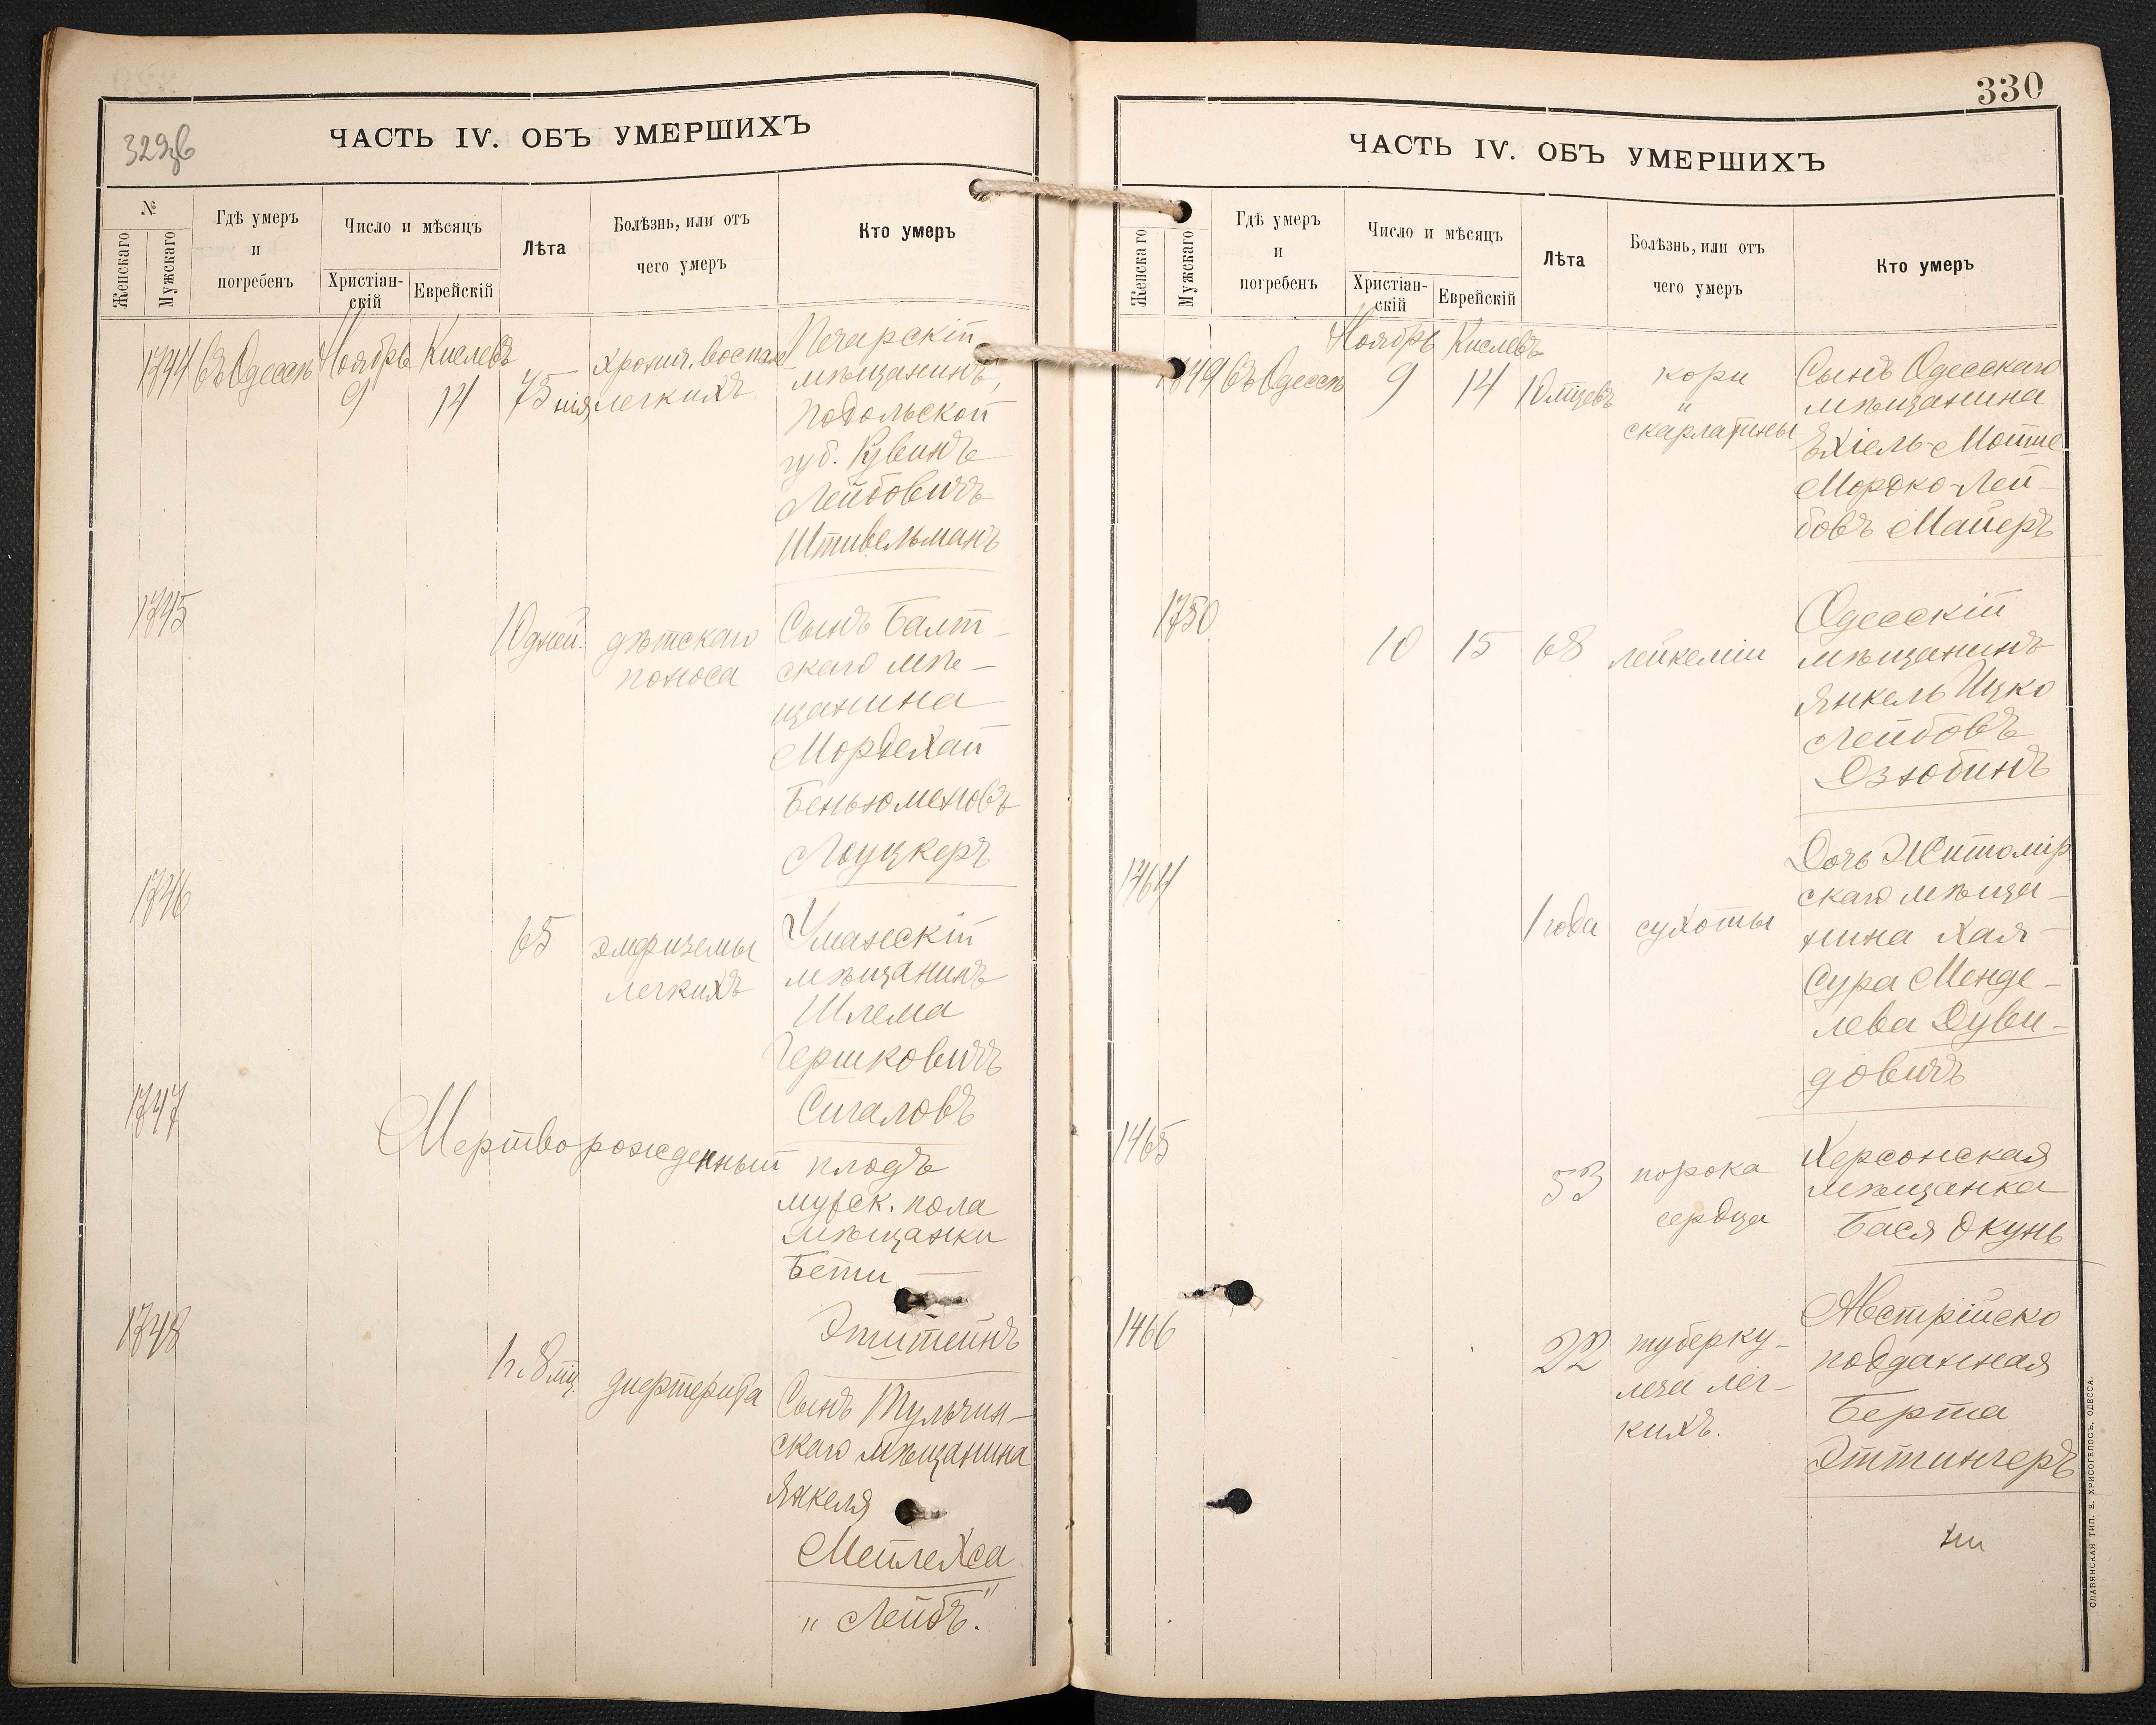 329об
ЧАСТЬ IV. ОБЪ УМЕРШИХЪ
№
Женскаго
Мужскаго
Гдѣ умеръ
и
погребенъ
Число и мѣсяцъ
Христіан-
скій
Еврейскій
Лѣта
Болѣзнь, или отъ
чего умеръ
Кто умеръ
1744 въ Одессѣ Ноябрь 9 Кислевъ 14 75
хронич. воспале
нія легкихъ
Печарскій
мѣщанинъ,
Подольской
губ. Рувинъ
Лейбовичъ
Штивельманъ
1745
10 дней.
дѣтскаго
поноса
Сынъ Балт-
скаго мѣ-
щанина
Мордехай
Беньюменовъ
Лоуцкеръ
1746
65
эмфиземы
легкихъ
Уманскій
мѣщанинъ
Шлема
Гершковичъ
Сигаловъ
1747
Мертворожденный плодъ
мужск. пола
мѣщанки
Бети
Эпштейнъ
1748
1 г. 8 мц.
дифтерита
Сынъ Тульчин-
скаго мѣщанина
Янкеля
Мейлехса
"Лейбъ".
330
ЧАСТЬ IV. ОБЪ УМЕРШИХЪ
Женскаго
Мужскаго
Гдѣ умеръ
и
погребенъ
Число и мѣсяцъ
Христіан-
скій
Еврейскій
Лѣта
Болѣзнь, или отъ
чего умеръ
Кто умеръ
1749 въ Одессѣ Ноябрь 9 Кислевъ 14 10 мцевъ
кори
и
скарлатины
Сынъ Одесскаго
мѣщанина
Ехіель-Мотше
Мордко-Лей-
бовъ Майеръ
1750
10 15 68 лейкеміи
Одесскій
мѣщанинъ
Янкель Ицко
Лейбовъ
Озюбинъ
1464
1 года сухоты
Дочь Житомір
скаго мѣща-
нина Хая-
Сура Менде-
лева Дуви-
довичъ
1465
53
порока
сердца
Херсонская
мѣщанка
Бася Окунь
1466
22
туберку-
леза лег-
кихъ.
Австрійско
подданная
Берта
Эттингеръ
СЛАВЯНСКАЯ ТИП. Е. ХРИСОГЕЛОСЪ, ОДЕССА.